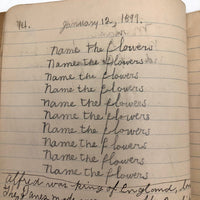 January 12, 1897.
Name the flowers
Name the flowers
Name the flowers
Name the flowers
Name the flowers
Name the flowers
Name the flowers
Name the flowers
Name the flowers
Name the flowers
Alfred was king of England,
The Danes made